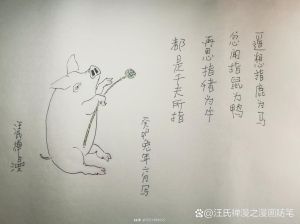 遥想指鹿为马
忽闻指鼠为鸭
再思指猪为牛
都是千夫所指
癸卯兔年六月写
汪氏禅漫
@汪氏禅漫之漫画随笔